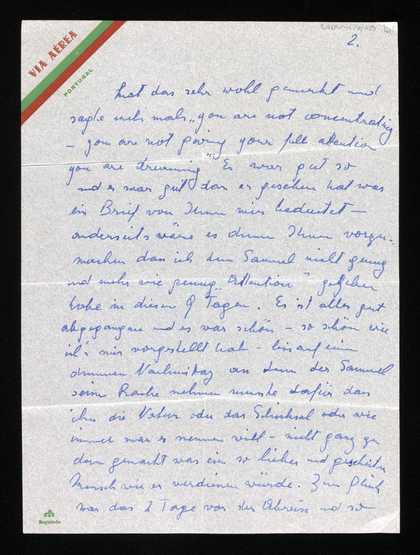 VIA AÉREA
PORTUGAL
2.
hat das sehr wohl gemerkt und
sagte mehrmals „you are not concentrating
– you are not giving your full attention
you are dreaming" Es war gut so
und es war gut dass er gesehen hat was
ein Brief von Ihnen mir bedeutet –
anderseits wäre es dumm Ihnen vorzu-
machen dass ich dem Samuel nicht genug
und mehr wie genug „Attention" gegeben
habe in diesen 9 Tagen. Es ist alles gut
abgegangen und es war schön – so schön wie
ich's mir vorgestellt hab – bis auf ein
dummen Nachmittag an dem der Samuel
seine Rache nehmen musste dafür dass
ihn die Natur oder das Schicksal oder wie
immer man es nennen will – nicht ganz zu
dem gemacht was ein so lieber und gescheiter
Mensch wie er verdienen würde. Zum Glück
war das 2 Tage vor der Abreise und so